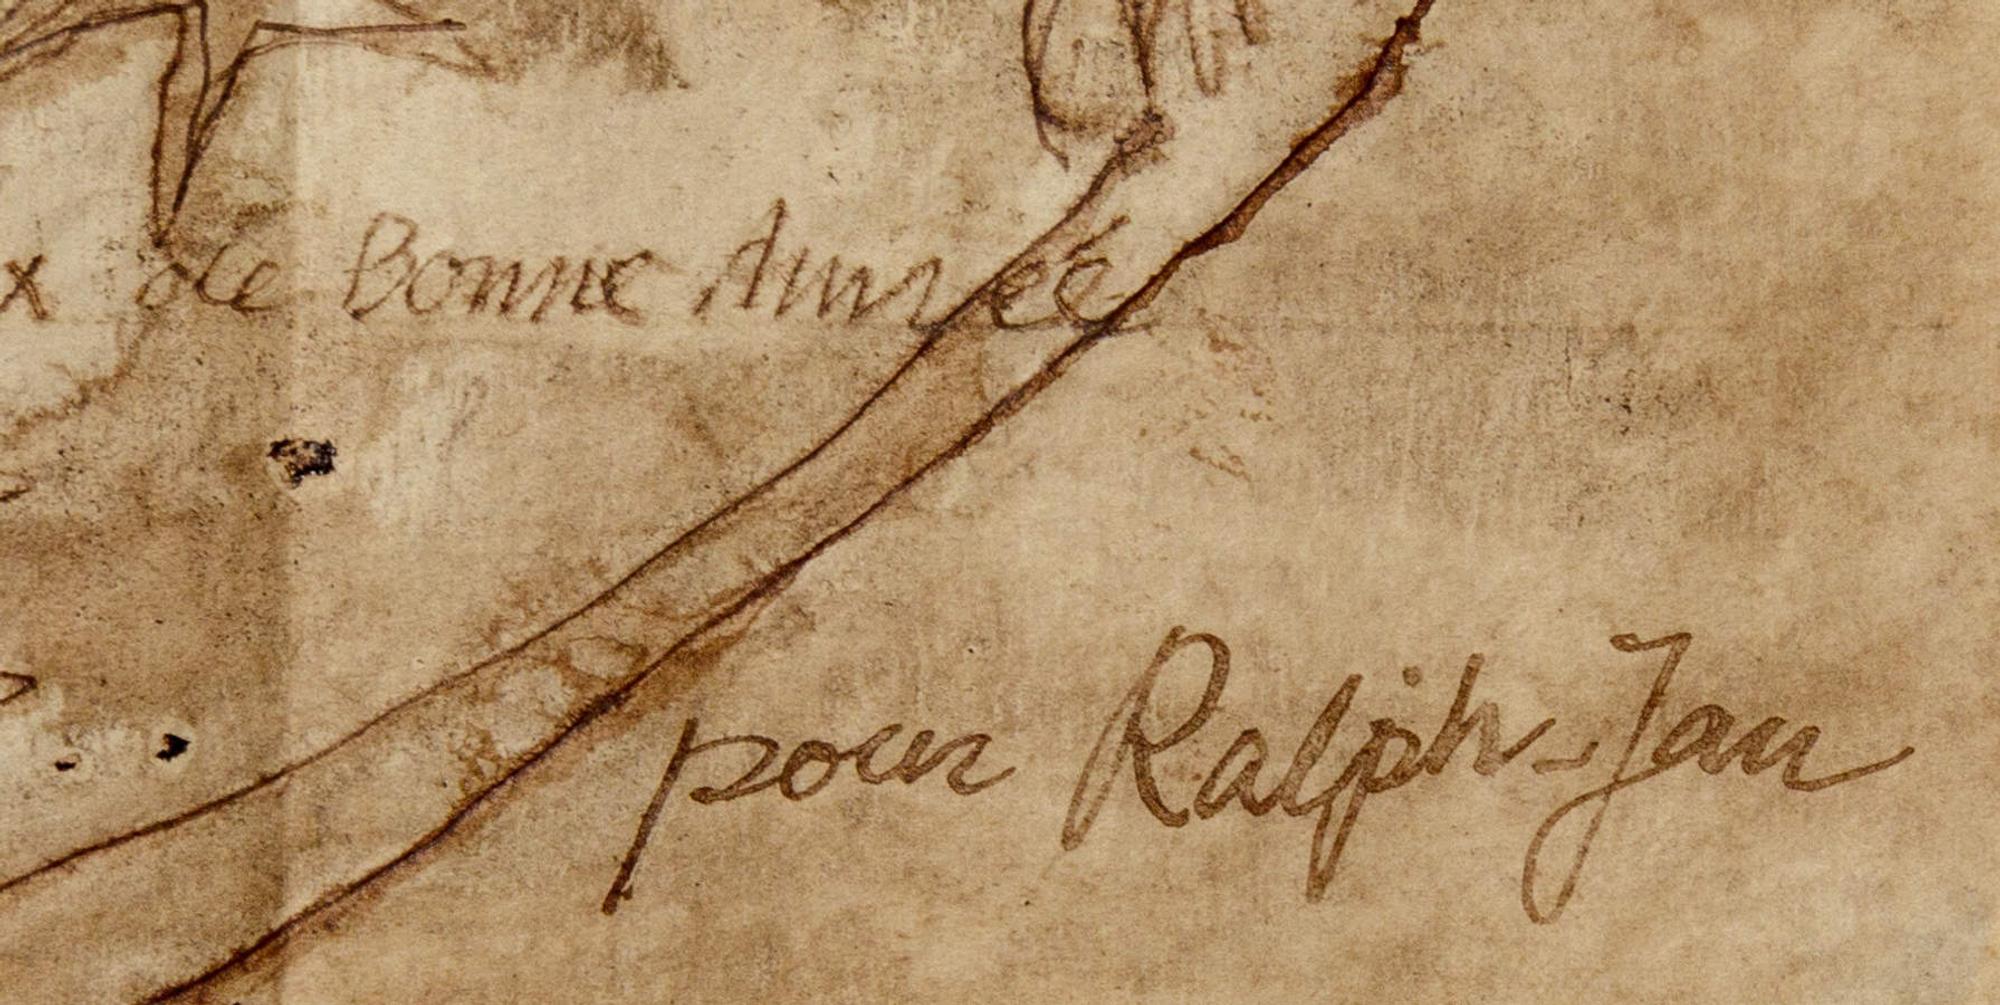 x de Bonne Année
pour Ralph-Jan